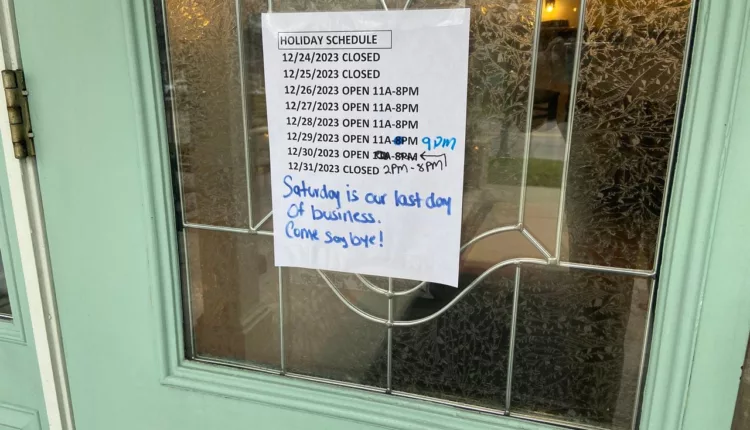 HOLIDAY SCHEDULE
12/24/2023 CLOSED
12/25/2023 CLOSED
12/26/2023 OPEN 11A-8PM
12/27/2023 OPEN 11A-8PM
12/28/2023 OPEN 11A-8PM
12/29/2023 OPEN 11A-8PM 9pm
12/30/2023 OPEN 11A-8PM
12/31/2023 CLOSED 2PM-8PM
Saturday is our last day
Of business.
Come say bye!